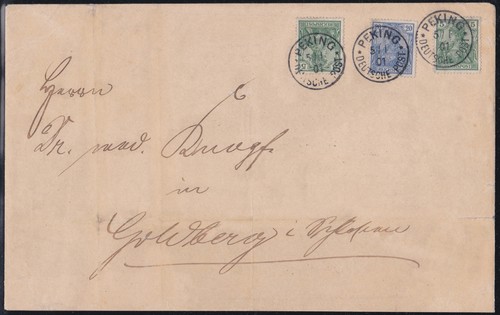 PEKING
DEUTSCHE POST
PEKING
5/1
01
DEUTSCHE POST
20
PEKING
5/1
01
DEUTSCHE POST
5
Herrn
Dr. med.
in
Goldberg i Schlesien